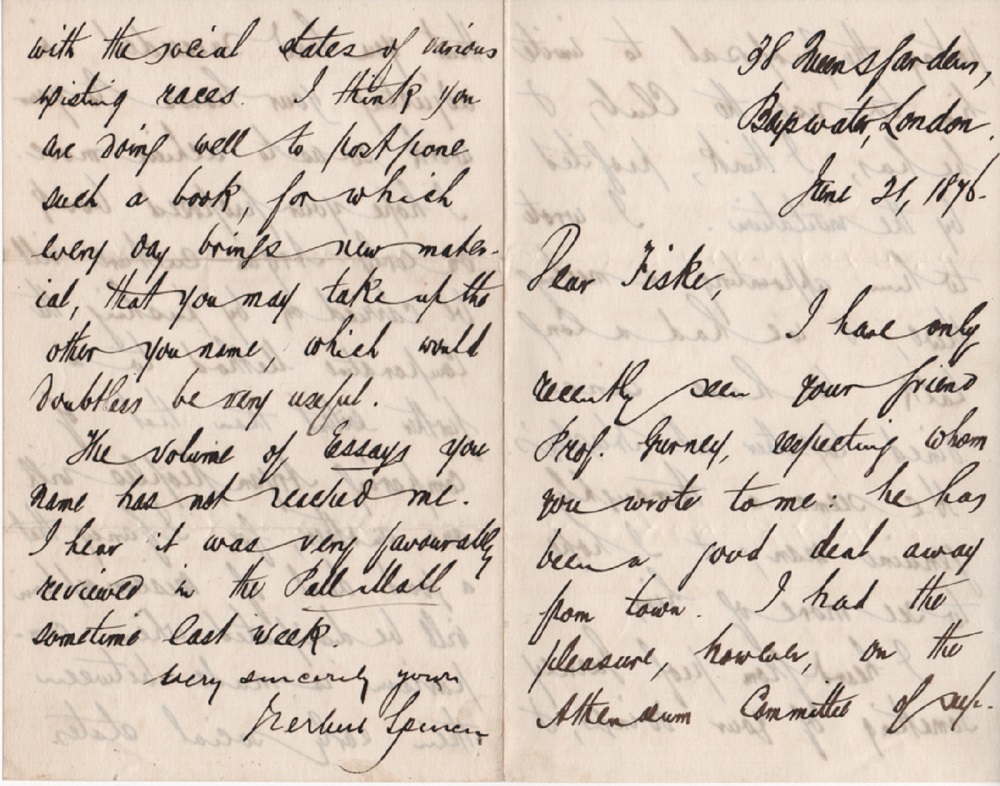 38 Queens Gardens,
Bayswater, London.
June 21, 1876.
Dear Fiske,
I have only
recently seen your friend
Prof. Gurney, respecting whom
you wrote to me: he has
been a good deal away
from town. I had the
pleasure, however, on the
Athenæum Committee of sup-
with the social states of various
existing races. I think you
are doing well to postpone
such a book, for which
every day brings new mater-
ial, that you may take up the
other you name, which would
doubtless be very useful.
The volume of Essays you
name has not reached me.
I hear it was very favourably
reviewed in the Pall Mall
sometime last week.
Very sincerely yours
Herbert Spencer